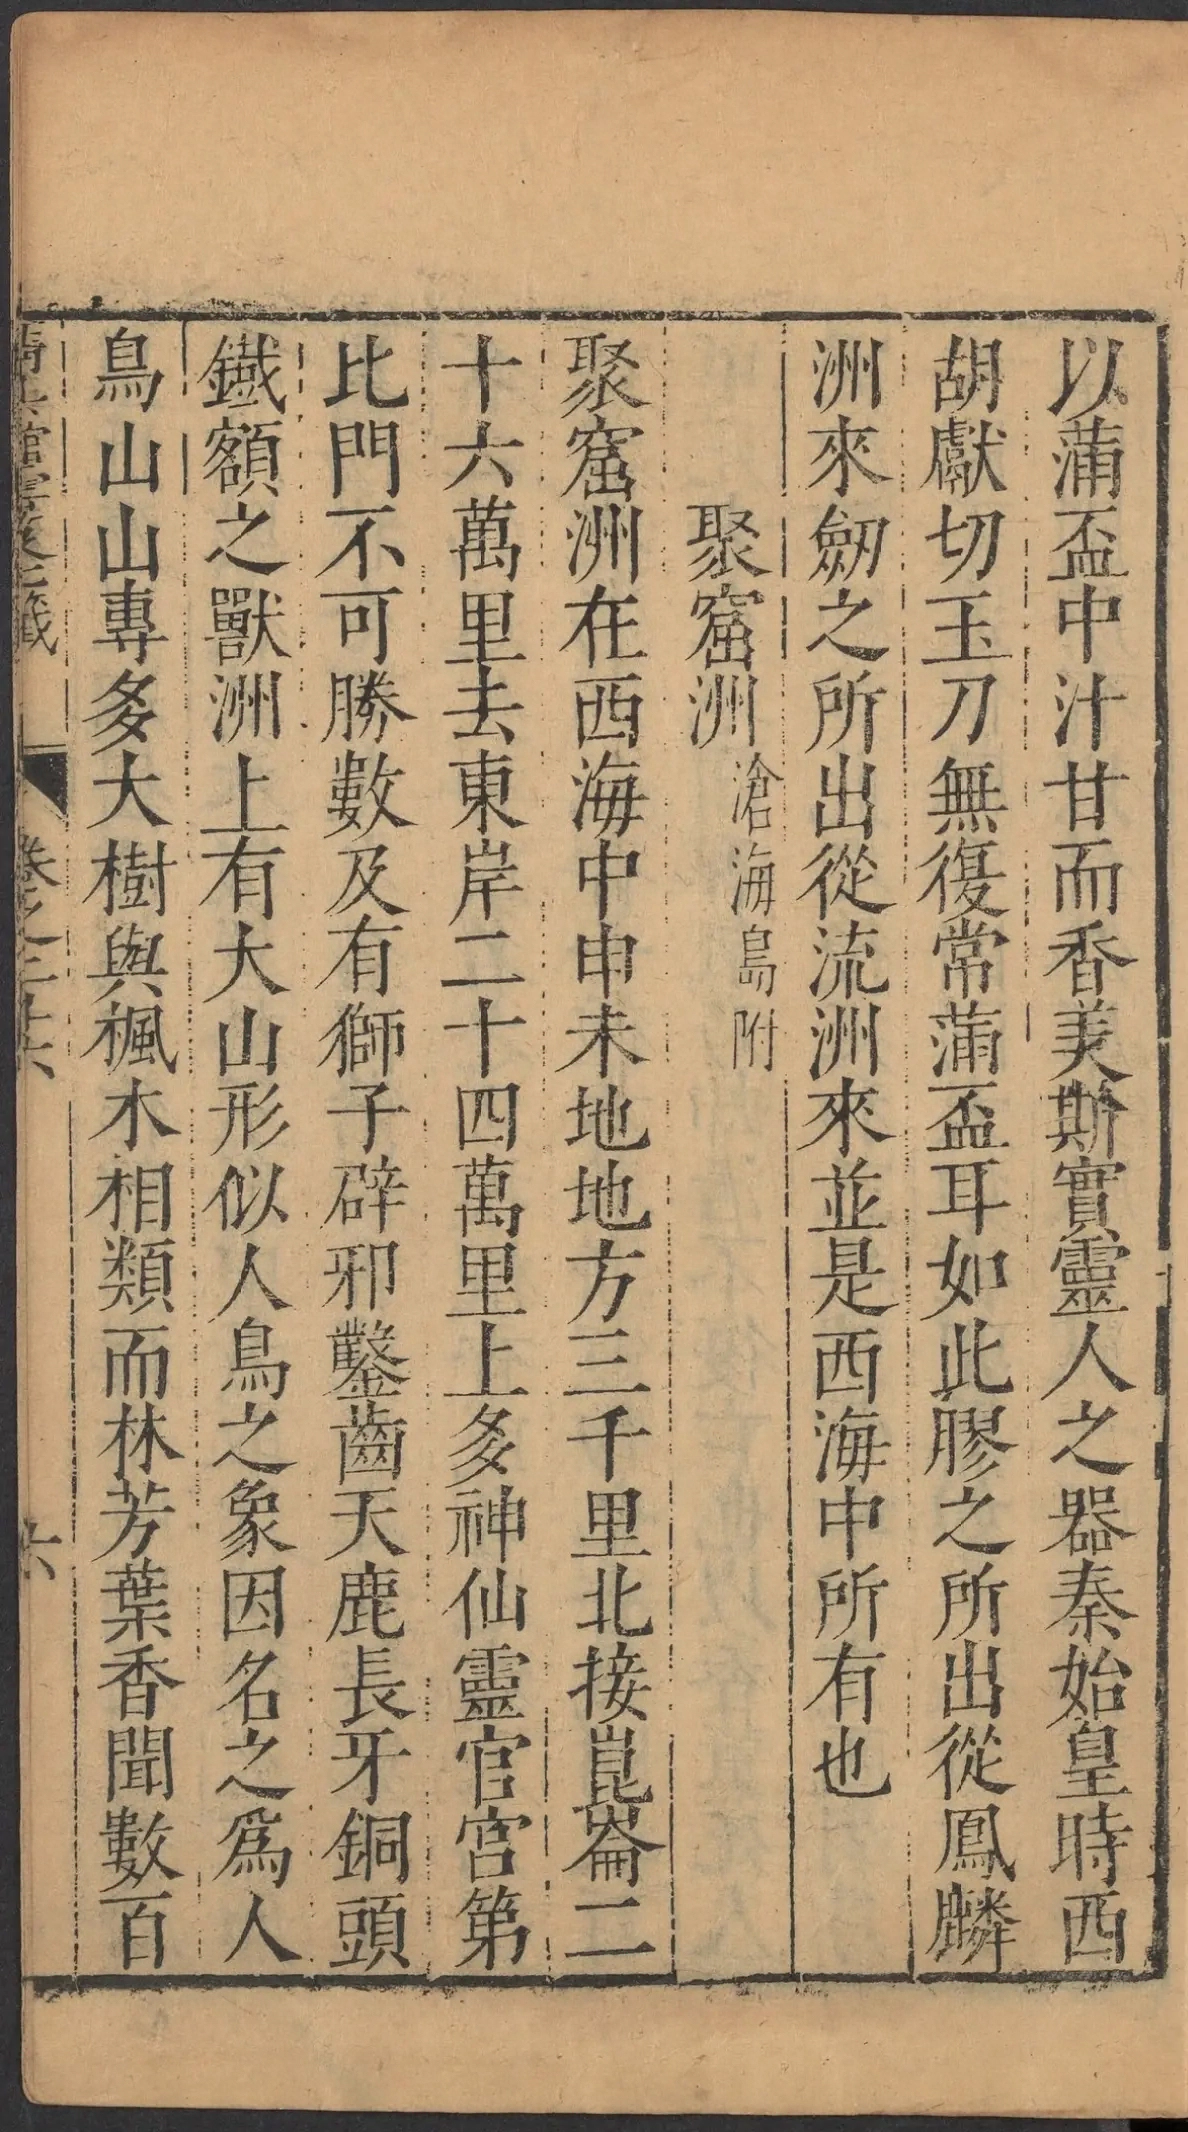 以蒲盃中汁甘而香美斯實靈人之器秦始皇時西
胡獻切玉刀無復常蒲盃耳如此膠之所出從鳳麟
洲來劒之所出從流洲來並是西海中所有也
聚窟洲滄海島附
聚窟洲在西海中申未地地方三千里北接崑崙二
十六萬里去東岸二十四萬里上多神仙靈官宮第
比門不可勝數及有獅子辟邪鑿齒天鹿長牙銅頭
鐵額之獸洲上有大山形似人鳥之象因名之為人
鳥山山專多大樹與楓木相類而林芳葉香聞數百
卷之二十六
六